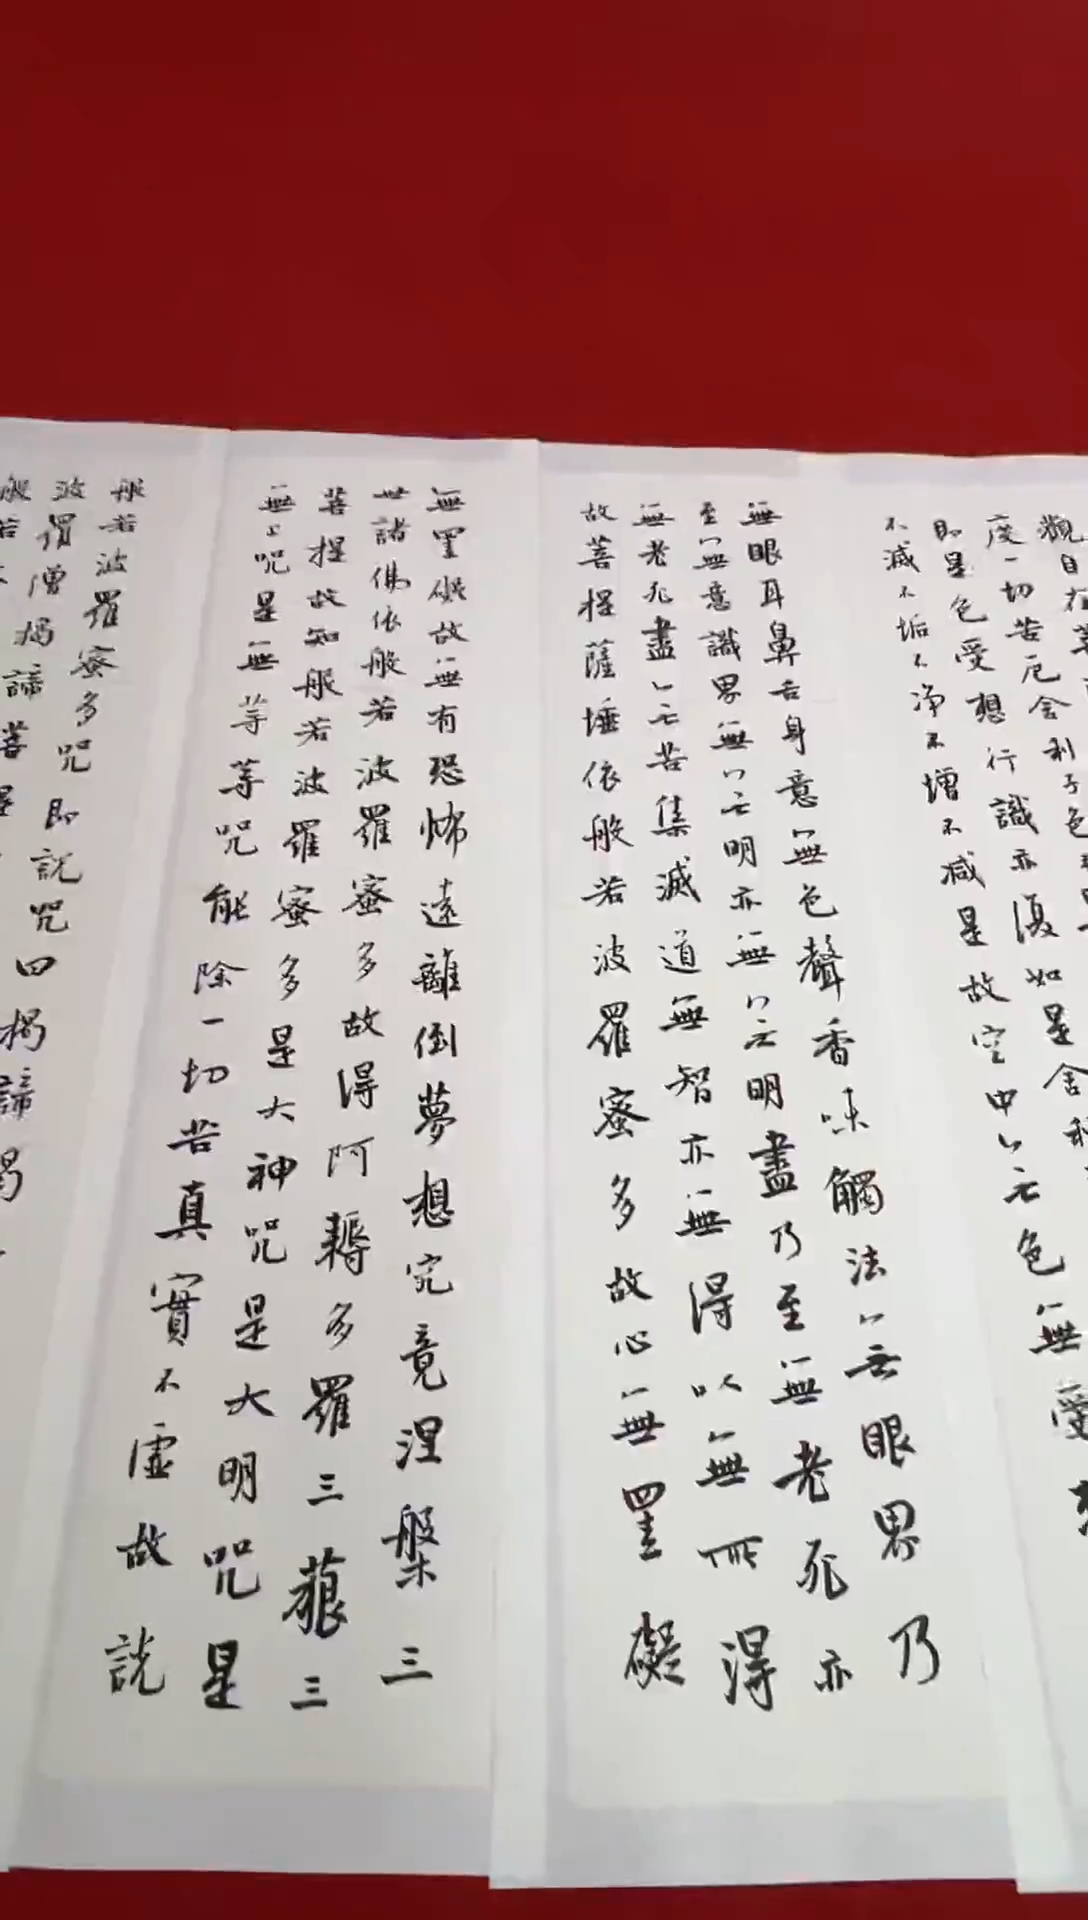 觀自在菩
度一切苦厄舍利子色
即是色受想行識亦復如是舍利
不滅不垢不净不增不减是故空中无色無受想
無眼耳鼻舌身意無色聲香味觸法无眼界乃
至無意識界無无明亦無无明盡乃至無老死亦
無老死盡无苦集滅道無智亦無得以無所得
故菩提薩埵依般若波羅蜜多故心無罣礙
無罣礙故無有恐怖遠離倒夢想究竟涅槃三
世諸佛依般若波羅蜜多故得阿耨多羅三藐三
菩提故知般若波羅蜜多是大神咒是大明咒是
無上咒是無等等咒能除一切苦真實不虛故説
般若波羅蜜多咒即説咒曰揭諦揭
波羅僧揭諦菩提
般若